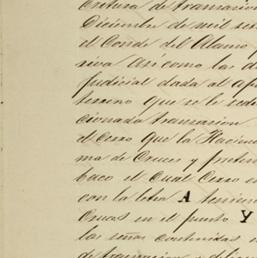 critura de transacion
Diciembre de mil se
el Conde del Alamo y
siva asi como las d
Judicial dada al apo
terreno que se le ced
cionada transacion
el Cerro que la Hacien
ma de Cruces y preten
baco el cual Cerro e
con la letra A tenien
Cruces en el punto Y
las señas contenidas
de transacion y